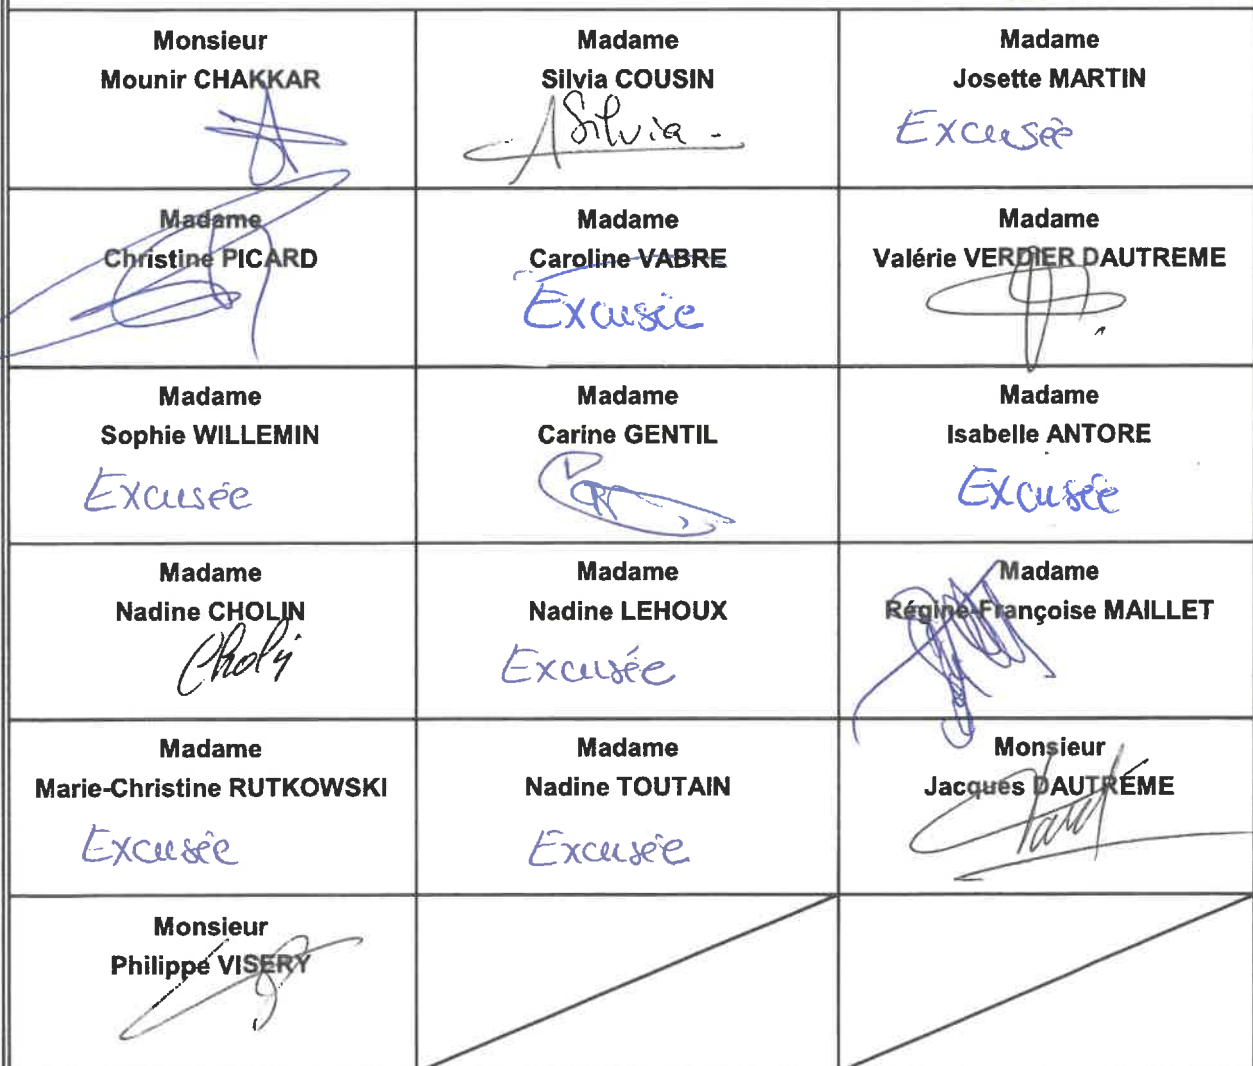 Monsieur
Mounir CHAKKAR
Madame
Silvia COUSIN
Silvia
Madame
Josette MARTIN
Excusée
Madame
Christine PICARD
Madame
Caroline VABRE
Excusée
Madame
Valérie VERDIER DAUTREME
Madame
Sophie WILLEMIN
Excusée
Madame
Carine GENTIL
Madame
Isabelle ANTORE
Excusée
Madame
Nadine CHOLIN
Madame
Nadine LEHOUX
Excusée
Madame
Régine-Françoise MAILLET
Madame
Marie-Christine RUTKOWSKI
Excusée
Madame
Nadine TOUTAIN
Excusée
Monsieur
Jacques DAUTRÉME
Monsieur
Philippe VISERY